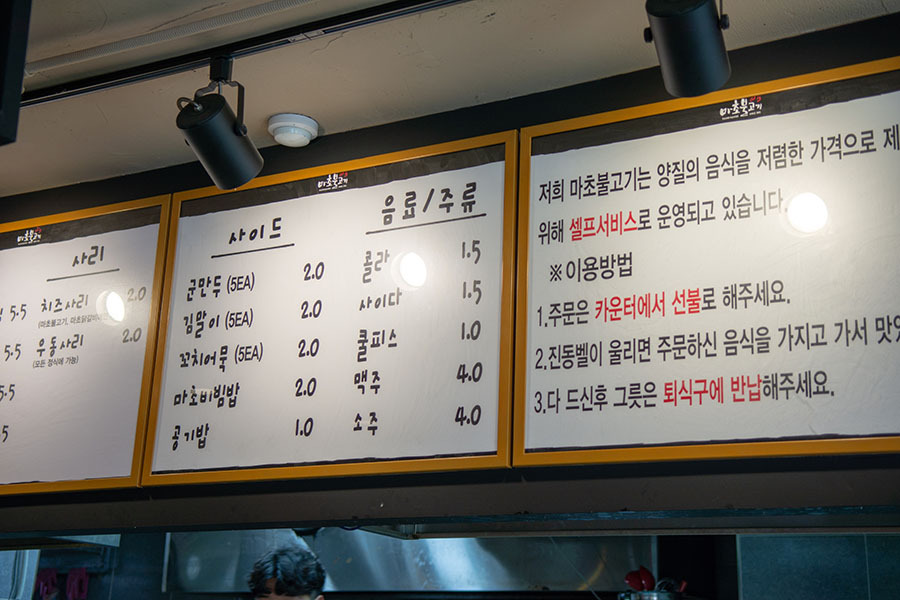 마초불고기
사리
5.5
치즈사리 2.0
5.5
우동사리 2.0
(모든 정식에 가능)
마초불고기
사이드
군만두 (5EA) 2.0
김말이 (5EA) 2.0
꼬치어묵 (5EA) 2.0
마초비빔밥 2.0
공기밥 1.0
음료/주류
콜라 1.5
사이다 1.5
쿨피스 1.0
맥주 4.0
소주 4.0
마초불고기
저희 마초불고기는 양질의 음식을 저렴한 가격으로 제
위해 셀프서비스로 운영되고 있습니다
※이용방법
1.주문은 카운터에서 선불로 해주세요.
2.진동벨이 울리면 주문하신 음식을 가지고 가서 맛있
3.다 드신후 그릇은 퇴식구에 반납해주세요.